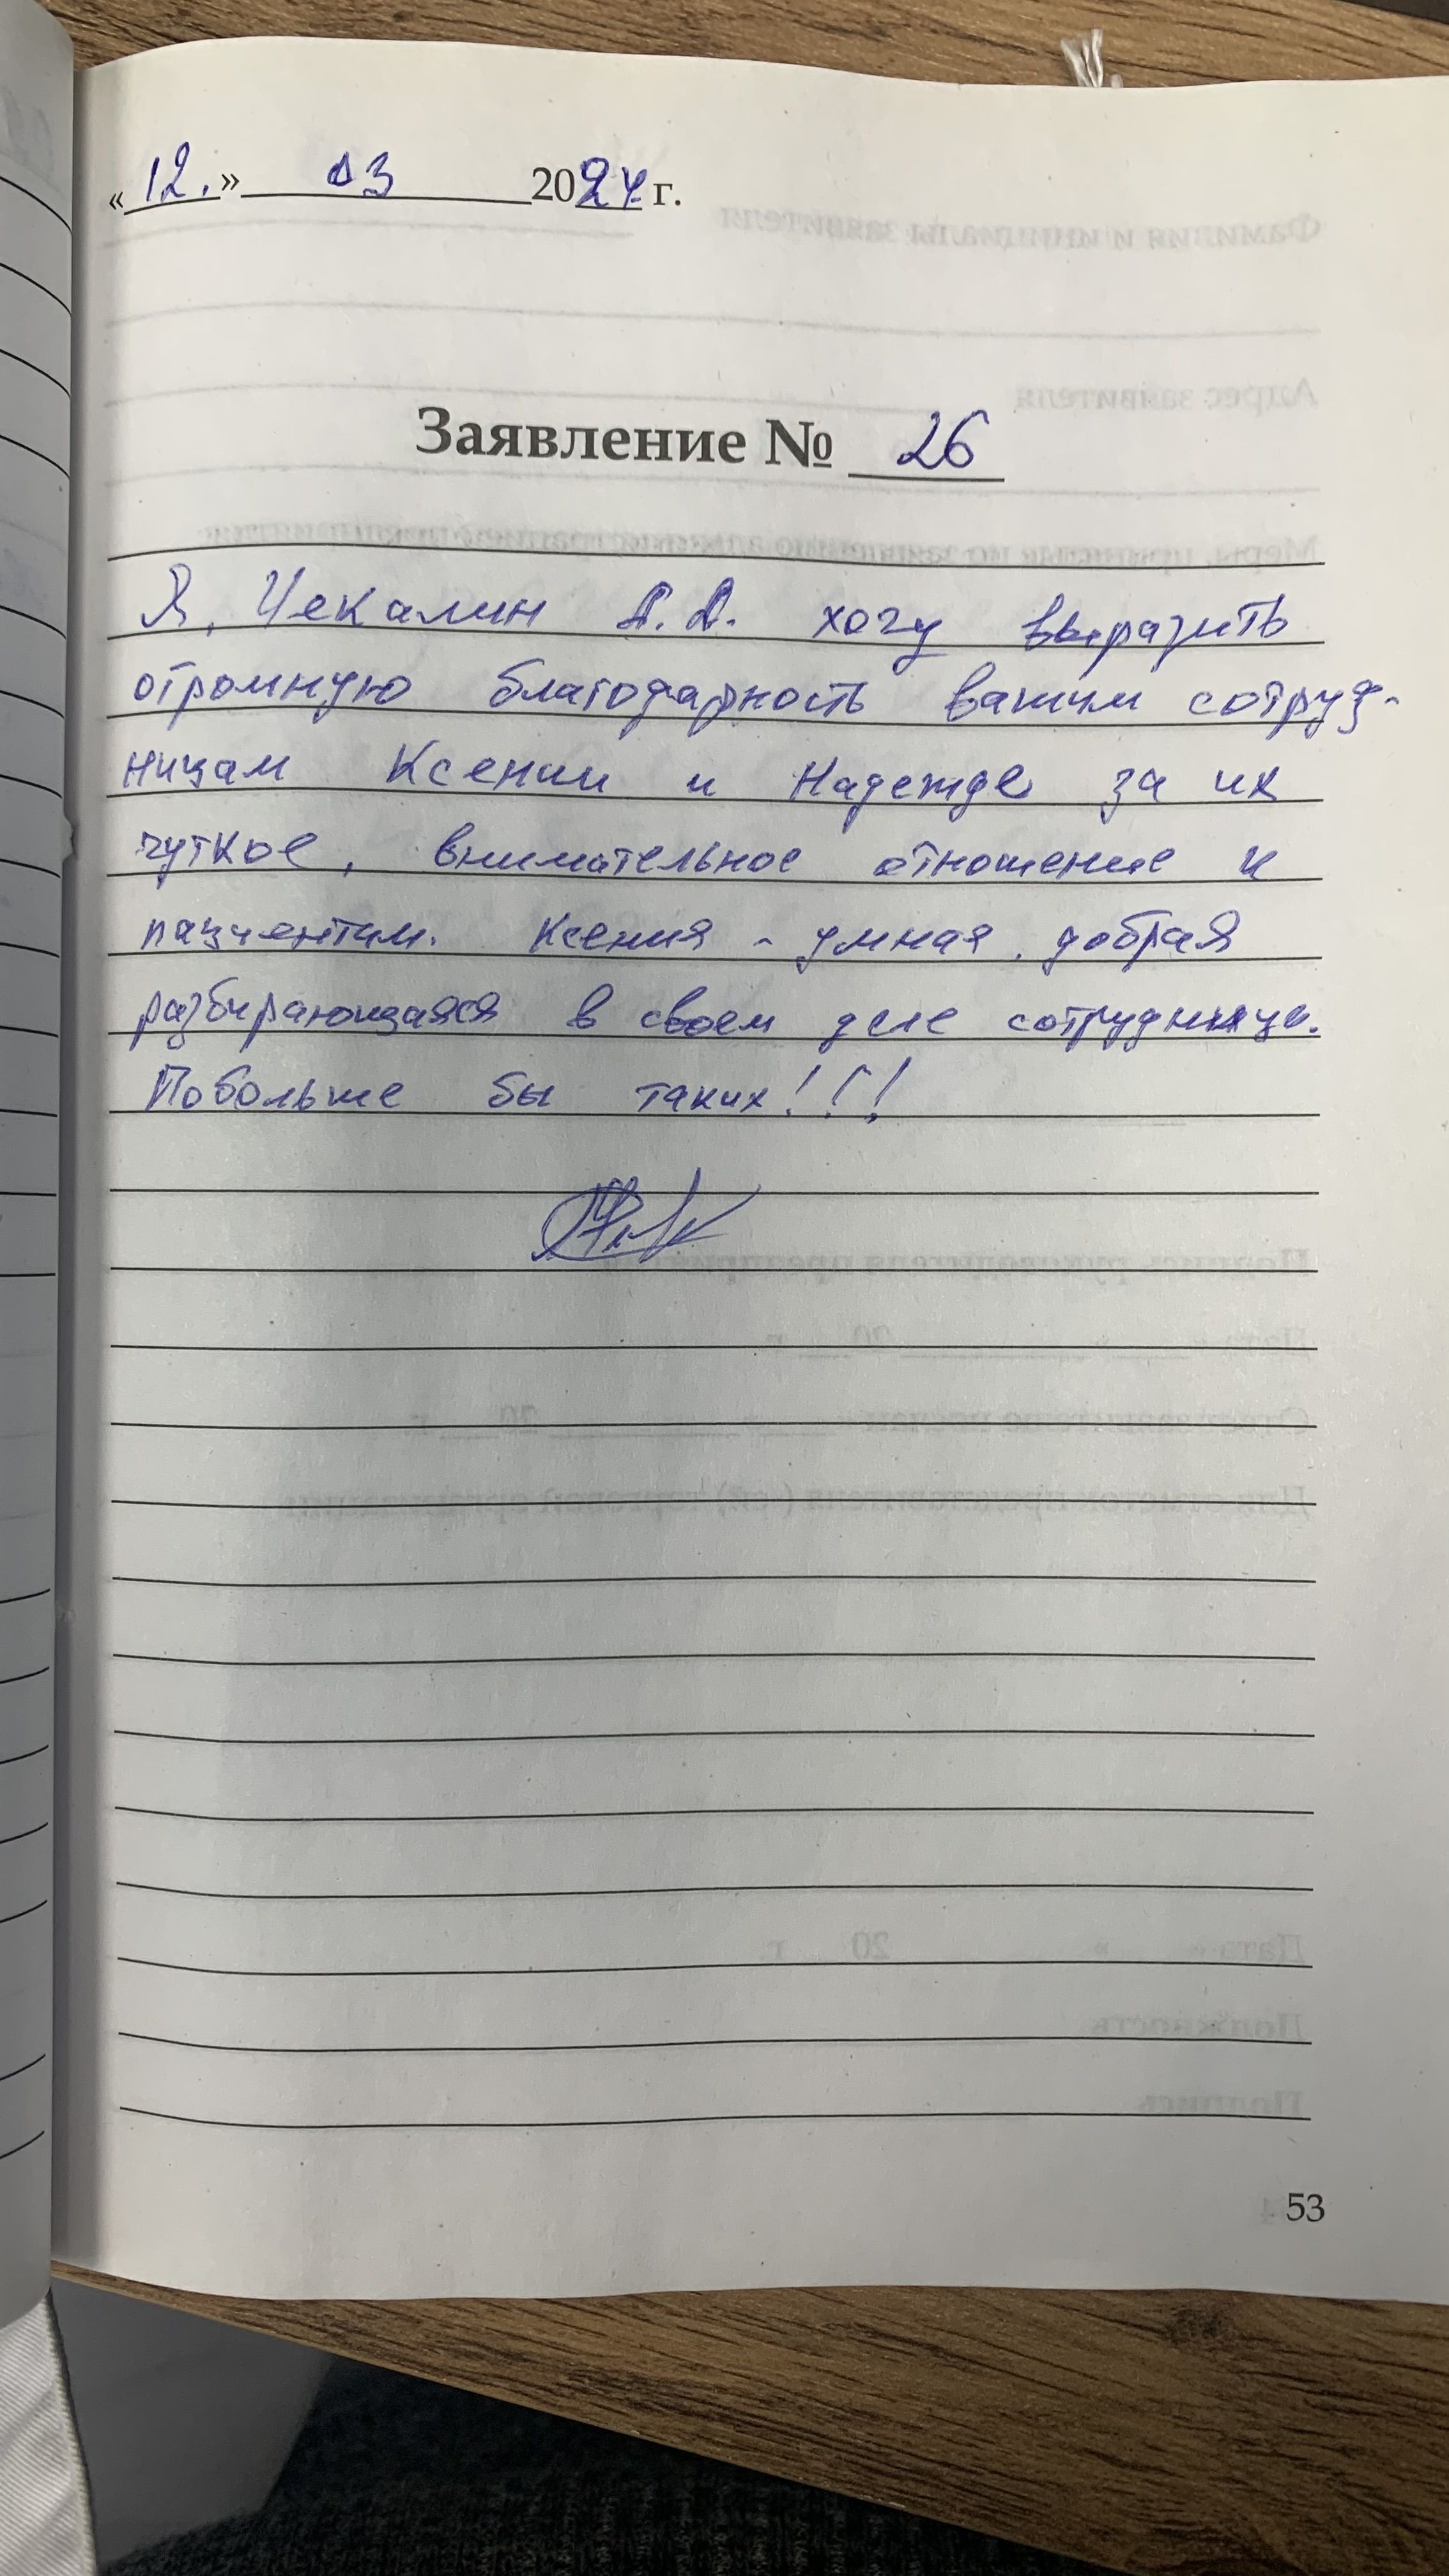 «12.» 03 2024 г.
Заявление № 26
Я, Чекалин А.А. хочу выразить
огромную благодарность вашим сотруд-
ницам Ксении и Надежде за их
чуткое, внимательное отношение к
пациентам. Ксения - умная, добрая
разбирающаяся в своем деле сотрудница.
Побольше бы таких!!!
53